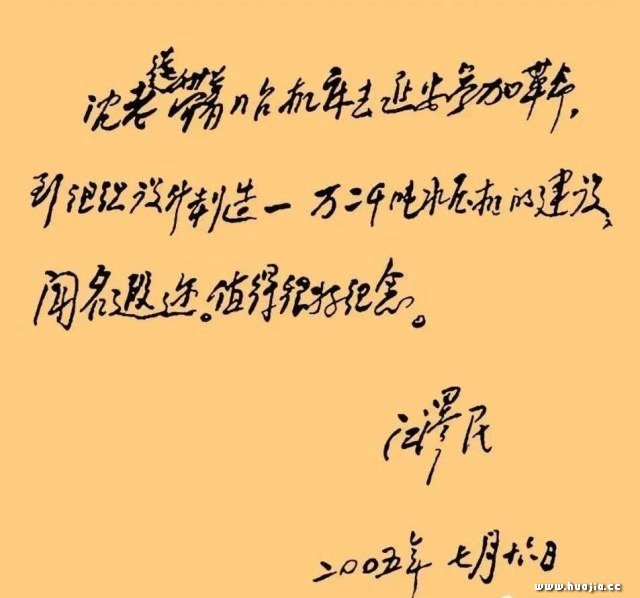 沈老带着几台机床去延安参加革命，
到组织设计制造一万二千吨水压机的建设，
闻名遐迩。值得很好纪念。
江泽民
二00五年七月十六日
www.huajia.cc